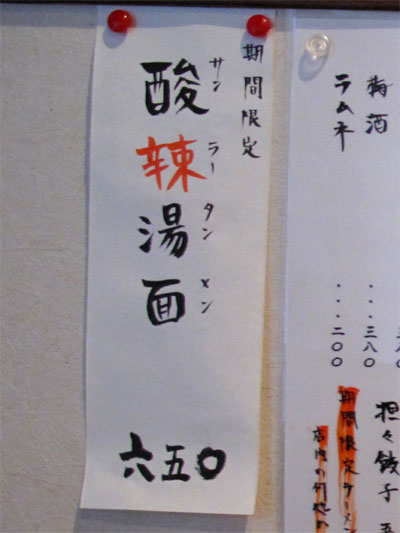 期間限定
酸辣湯面
サンラータンメン
六五〇
梅酒
・・・三八〇
ラムネ
・・・二〇〇
担々餃子
期間限定ラーメン